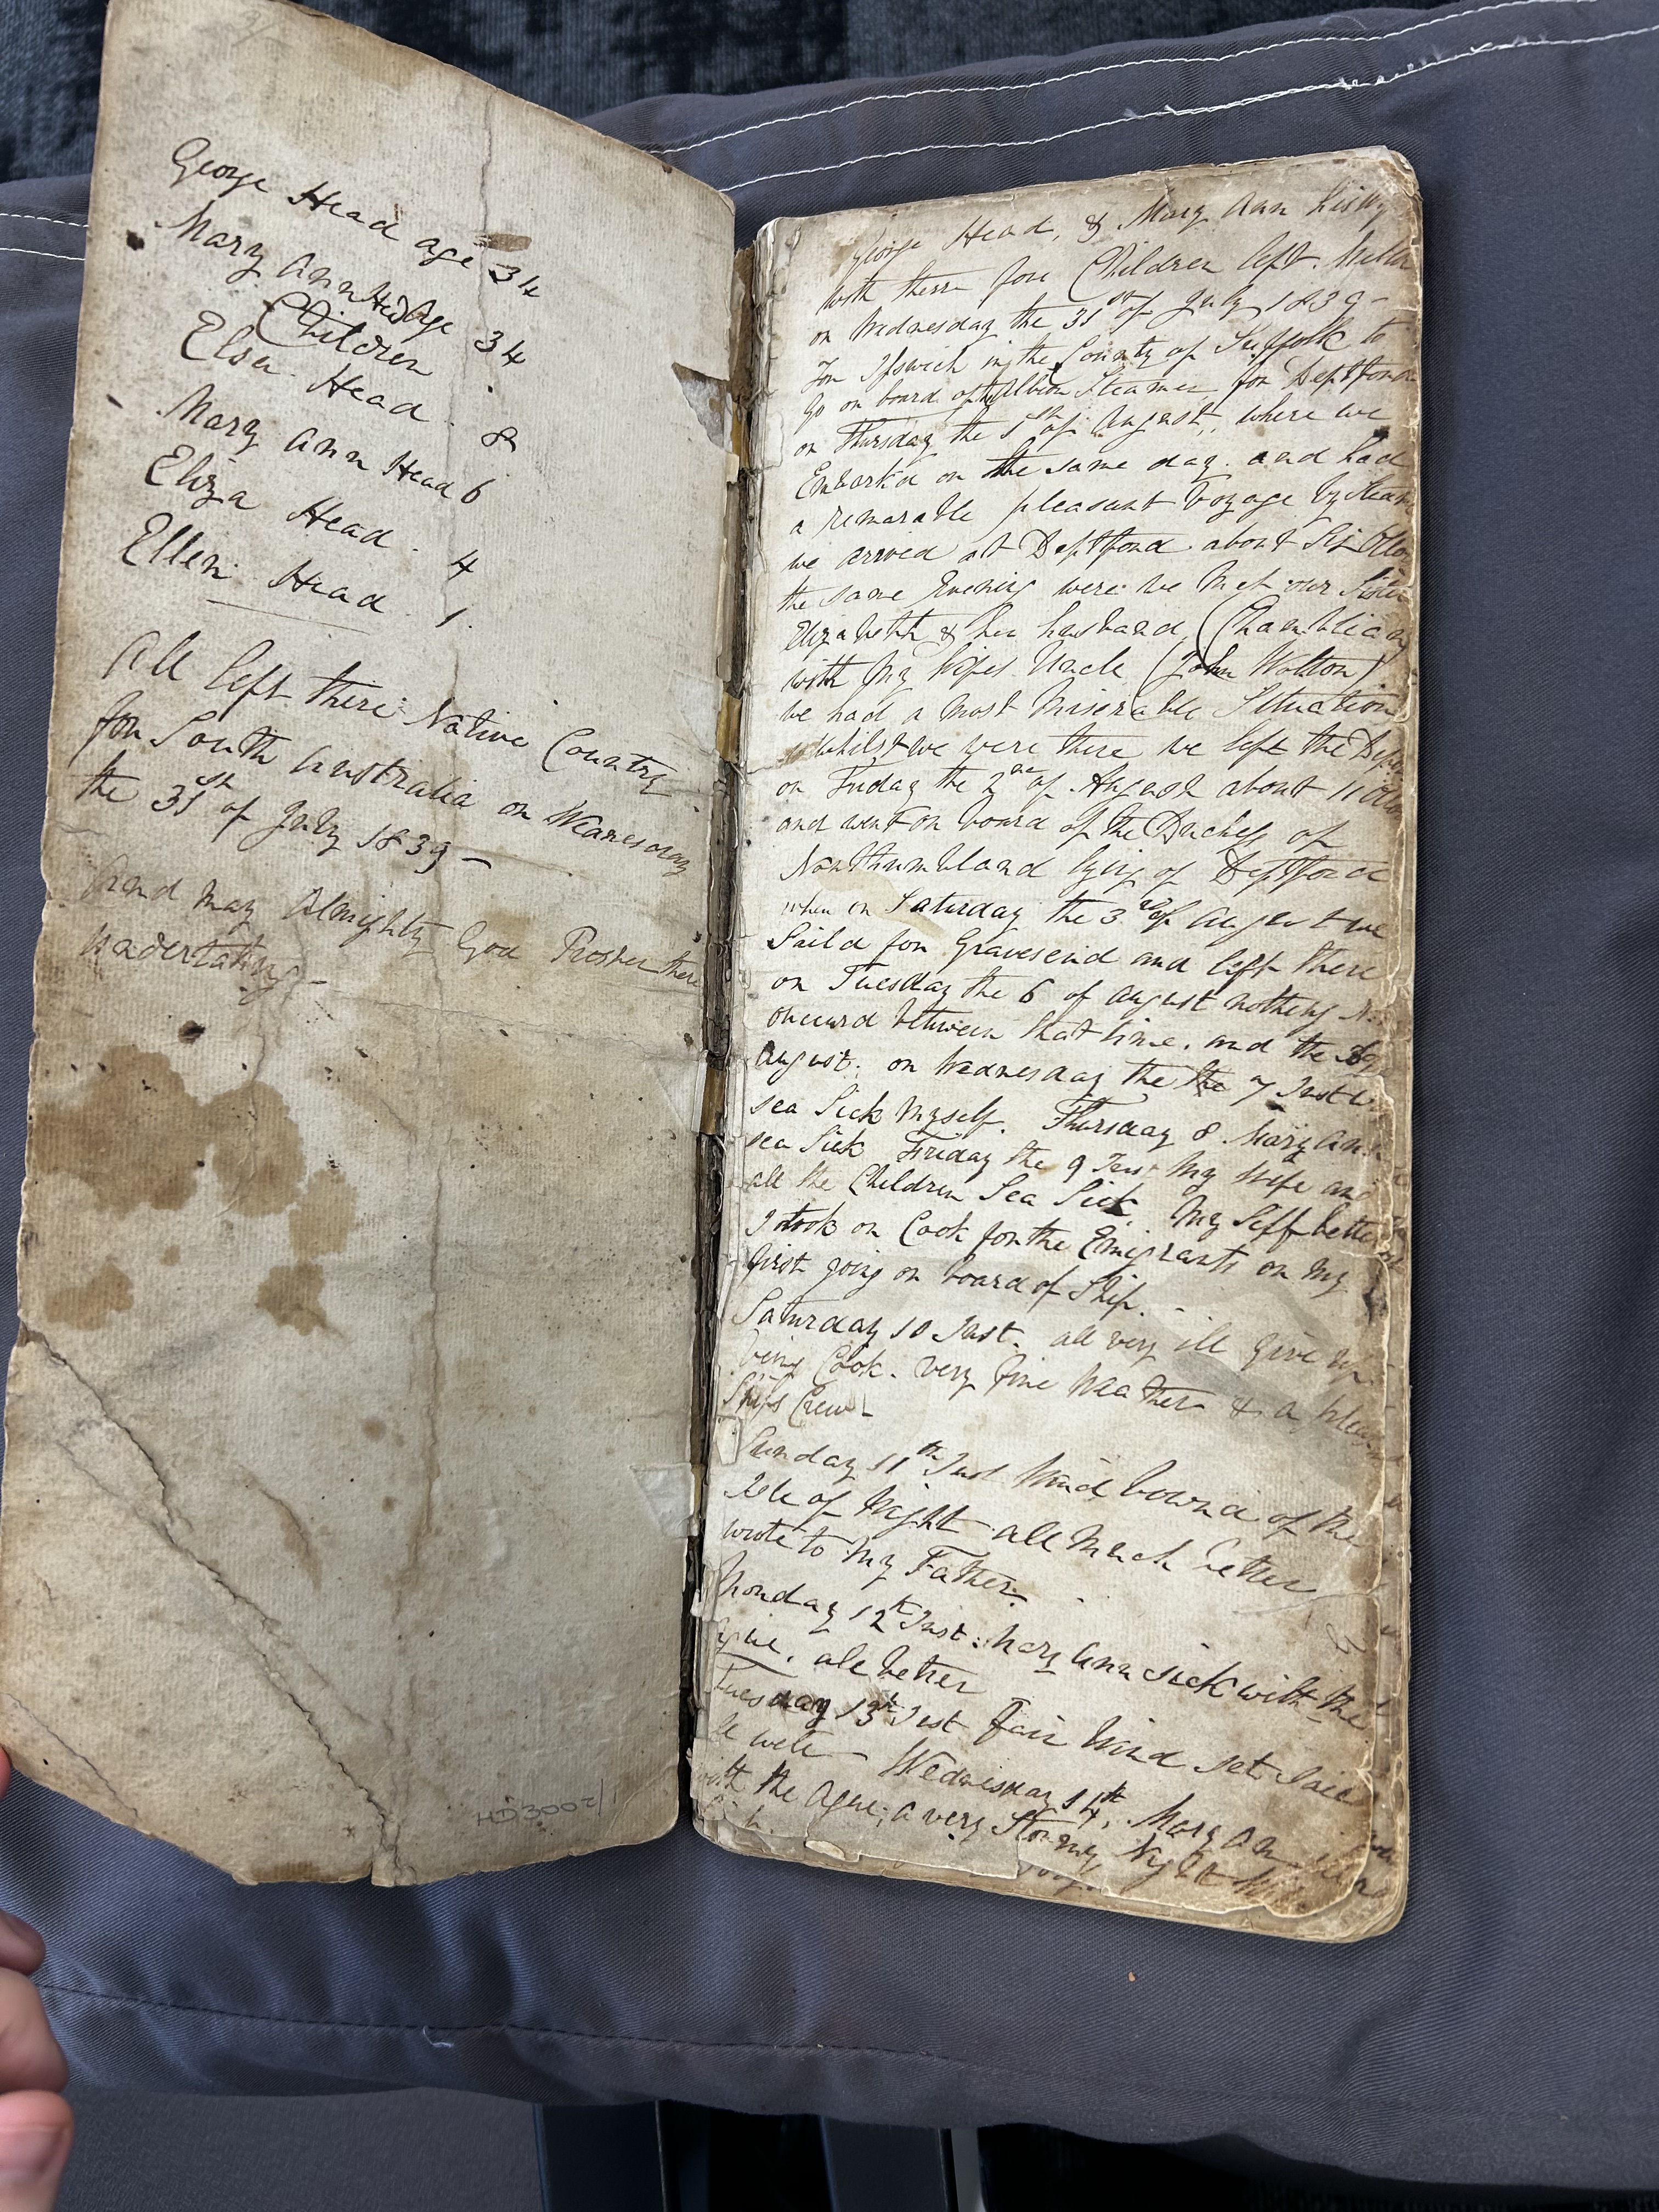 George Head age 34
Mary Ann Head Age 34
Children
Elsen Head 8
Mary Ann Head 6
Eliza Head 4
Ellen Head 1
All left there Native Country
for South Australia on Wednesday
the 31st of July 1839 -
And may Almighty God Prosper there
undertaking -
HD3002/1
George Head, & Mary Ann his
with there four Children left
on Wednesday the 31st of July 1839 -
for Ipswich in the County of Suffolk to
go on board of the Albion Steamer for Deptford
on Thursday the 1st of August, where we
Embark'd on the same day. and had
a remarable pleasant Voyage by Steam
we arrived at Deptford about Six
the same Evening were we Met our Sister
Elizabeth & her husband (
with my Wifes Uncle (John Wolton)
we had a most Miserable Situation
whilst we were there we left the
on Friday the 2nd of August about 11
and went on board of the Duchess of
Northumbland lying of Deptford
when on Saturday the 3rd of August we
Saild for Gravesend and left there
on Tuesday the 6 of August nothing
occurd between that time, and the
August. on Wednesday the the 7 Inst
sea Sick Myself. Thursday 8 Mary Ann
sea Sick Friday the 9 Inst My Wife and
all the Children Sea Sick. My Self better
I took on Cook for the Emigrants on my
first going on board of Ship. -
Saturday 10 Inst. all very ill give up
being Cook. very fine Weather & a
Ships Crew -
Sunday 11th Inst Wind bound of the
Isle of Wight all Much better
wrote to my Father.
Monday 12th Inst: Mary Ann sick with the
Ague. all better
Tuesday 13th Inst Fair Wind set Sail
Wednesday 14th. Mary Ann
with the Ague; a very Stormy Night